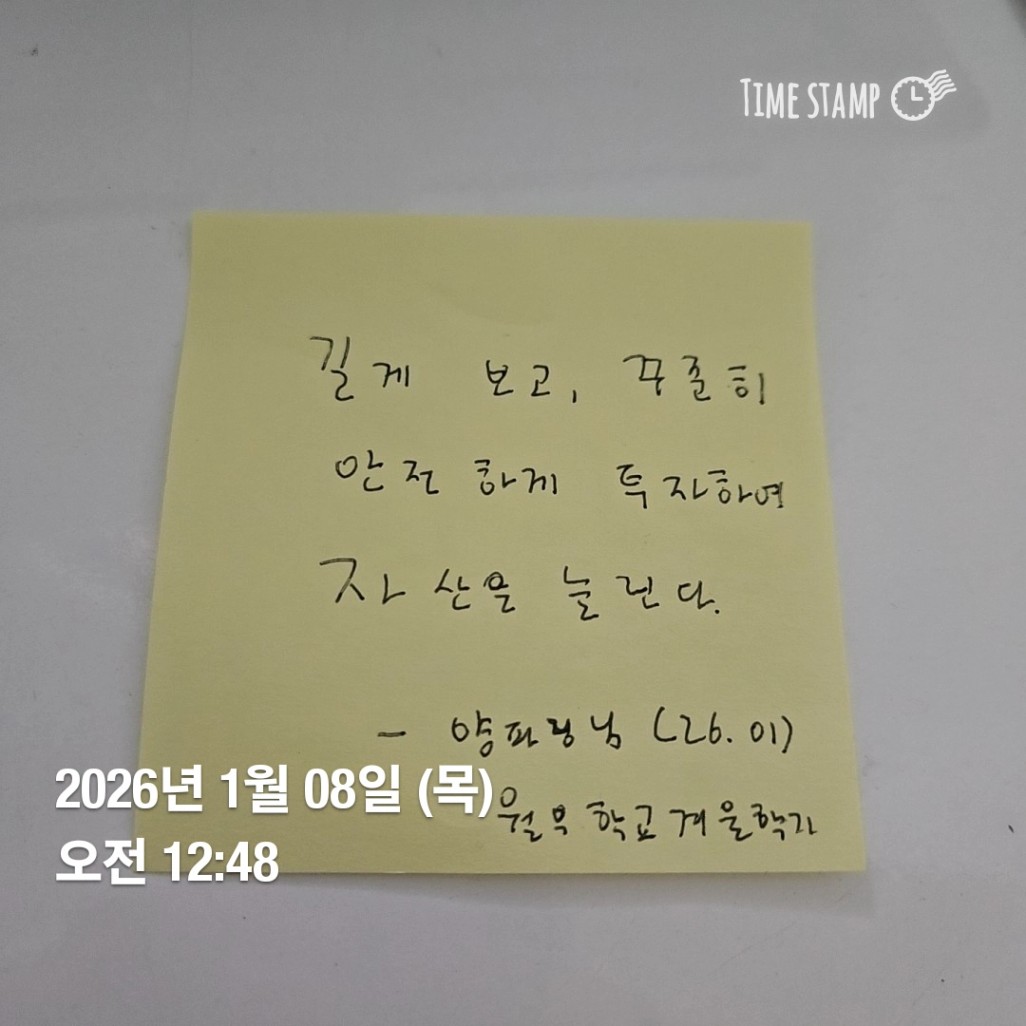 TIME STAMP
길게 보고, 꾸준히
안전하게 투자하여
자산을 늘린다.
- 양파링님 (26. 01)
2026년 1월 08일 (목)
월부학교 겨울학기
오전 12:48